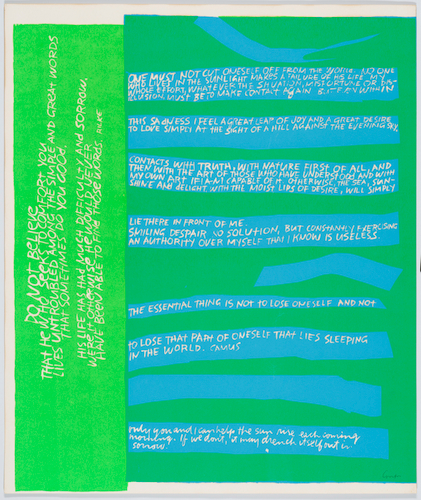 DO NOT BELIEVE
THAT HE WHO SEEKS TO COMFORT YOU
LIVES UNTROUBLED AMONG THE SIMPLE AND GREAT WORDS
THAT SOMETIMES DO YOU GOOD.
HIS LIFE HAS HAD MUCH DIFFICULTY AND SORROW.
WERE IT OTHERWISE HE WOULD NEVER
HAVE BEEN ABLE TO FIND THOSE WORDS RILKE
ONE MUST NOT CUT ONESELF OFF FROM THE WORLD. NO ONE
WHO LIVES IN THE SUNLIGHT MAKES A FAILURE OF HIS LIFE. MY
WHOLE EFFORT, WHATEVER THE SITUATION, MISFORTUNE OR DIS-
ILLUSION, MUST BE TO MAKE CONTACT AGAIN. BUT EVEN WITHIN
THIS SADNESS I FEEL A GREAT LEAP OF JOY AND A GREAT DESIRE
TO LOVE SIMPLY AT THE SIGHT OF A HILL AGAINST THE EVENING SKY.
CONTACTS WITH TRUTH, WITH NATURE FIRST OF ALL, AND
THEN WITH THE ART OF THOSE WHO HAVE UNDERSTOOD AND WITH
MY OWN ART IF I AM CAPABLE OF IT. OTHERWISE, THE SEA, SUN-
SHINE AND DELIGHT, WITH THE MOIST LIPS OF DESIRE, WILL SIMPLY
LIE THERE IN FRONT OF ME.
SMILING DESPAIR. NO SOLUTION, BUT CONSTANTLY EXERCISING
AN AUTHORITY OVER MYSELF THAT I KNOW IS USELESS.
THE ESSENTIAL THING IS NOT TO LOSE ONESELF AND NOT
TO LOSE THAT PART OF ONESELF THAT LIES SLEEPING
IN THE WORLD. CAMUS
only you and I can help the sun rise each coming
morning. If we don't, it may drench itself out in
sorrow.